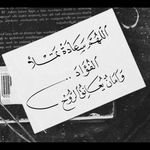 اللهم سعادة تملأ
الفؤاد ..
وأمان يعانق الروح